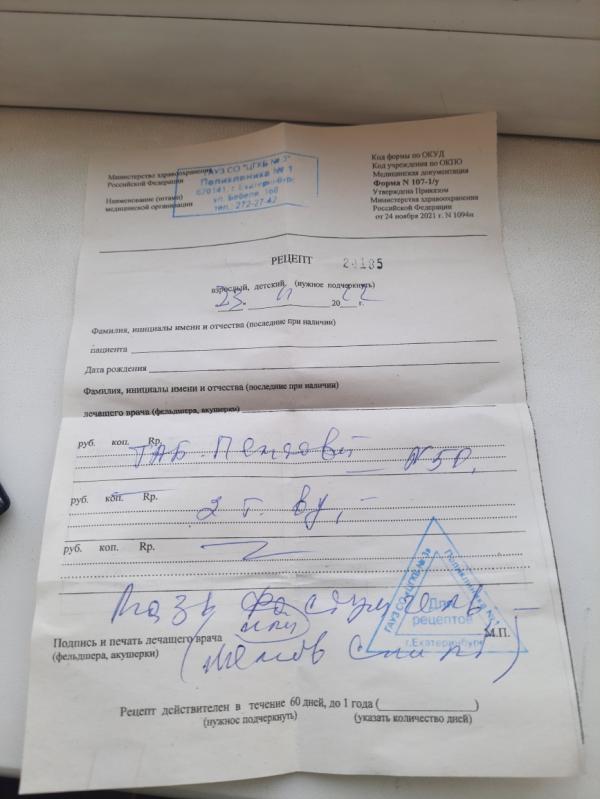 Министерство здравоохранения
Российской Федерации
Наименование (штамп)
медицинской организации
ГАУЗ СО "ЦГКБ № 3"
Поликлиника № 1
620141, г. Екатеринбург
ул. Бебеля, 160
тел.: 272-27-42
Код формы по ОКУД
Код учреждения по ОКПО
Медицинская документация
Форма N 107-1/у
Утверждена Приказом
Министерства здравоохранения
Российской Федерации
от 24 ноября 2021 г. N 1094н
РЕЦЕПТ 24185
взрослый, детский. (нужное подчеркнуть)
23. 11 2022 г.
Фамилия, инициалы имени и отчества (последние при наличии)
пациента
Дата рождения
Фамилия, инициалы имени и отчества (последние при наличии)
лечащего врача (фельдшера, акушерки)
руб. коп. Rp.
Таб. N50,
руб. коп. Rp.
2 т.
руб. коп. Rp.
Мазь
или
Подпись и печать лечащего врача
(фельдшера, акушерки)
М.П.
ГАУЗ СО «ЦГКБ № 3»
Поликлиника № 1
Для
рецептов
г.Екатеринбург
Рецепт действителен в течение 60 дней, до 1 года ( )
(нужное подчеркнуть) (указать количество дней)